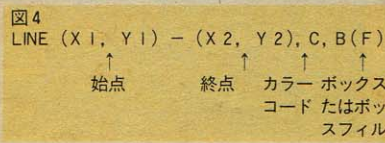 図4
LINE (X1, Y1) － (X2, Y2), C, B(F)
↑ ↑ ↑ ↑
始点 終点 カラー ボックス
コード たはボッ
スフィル